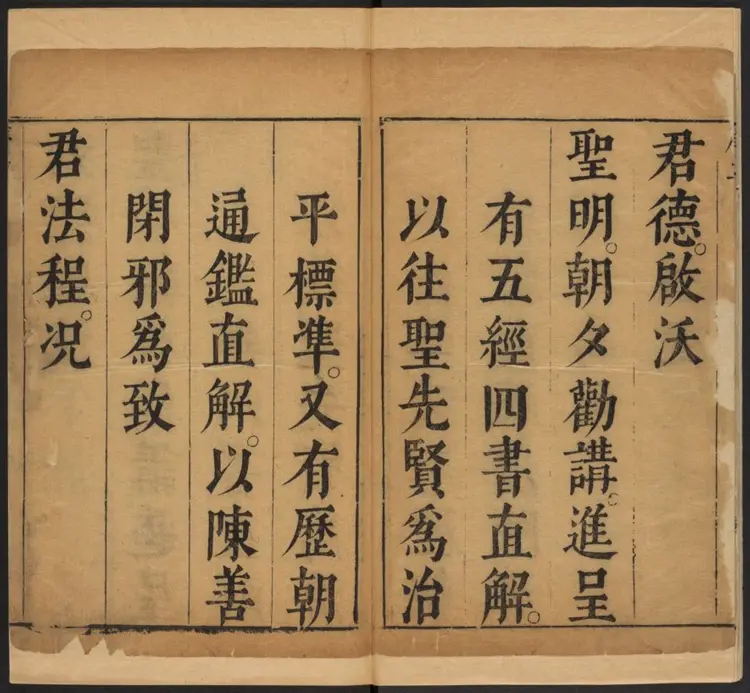 君德。啟沃
聖明。朝夕勸講。進呈
有五經四書直解。
以往聖先賢爲治
平標準。又有歷朝
通鑑直解。以陳善
閉邪爲致
君法程。况